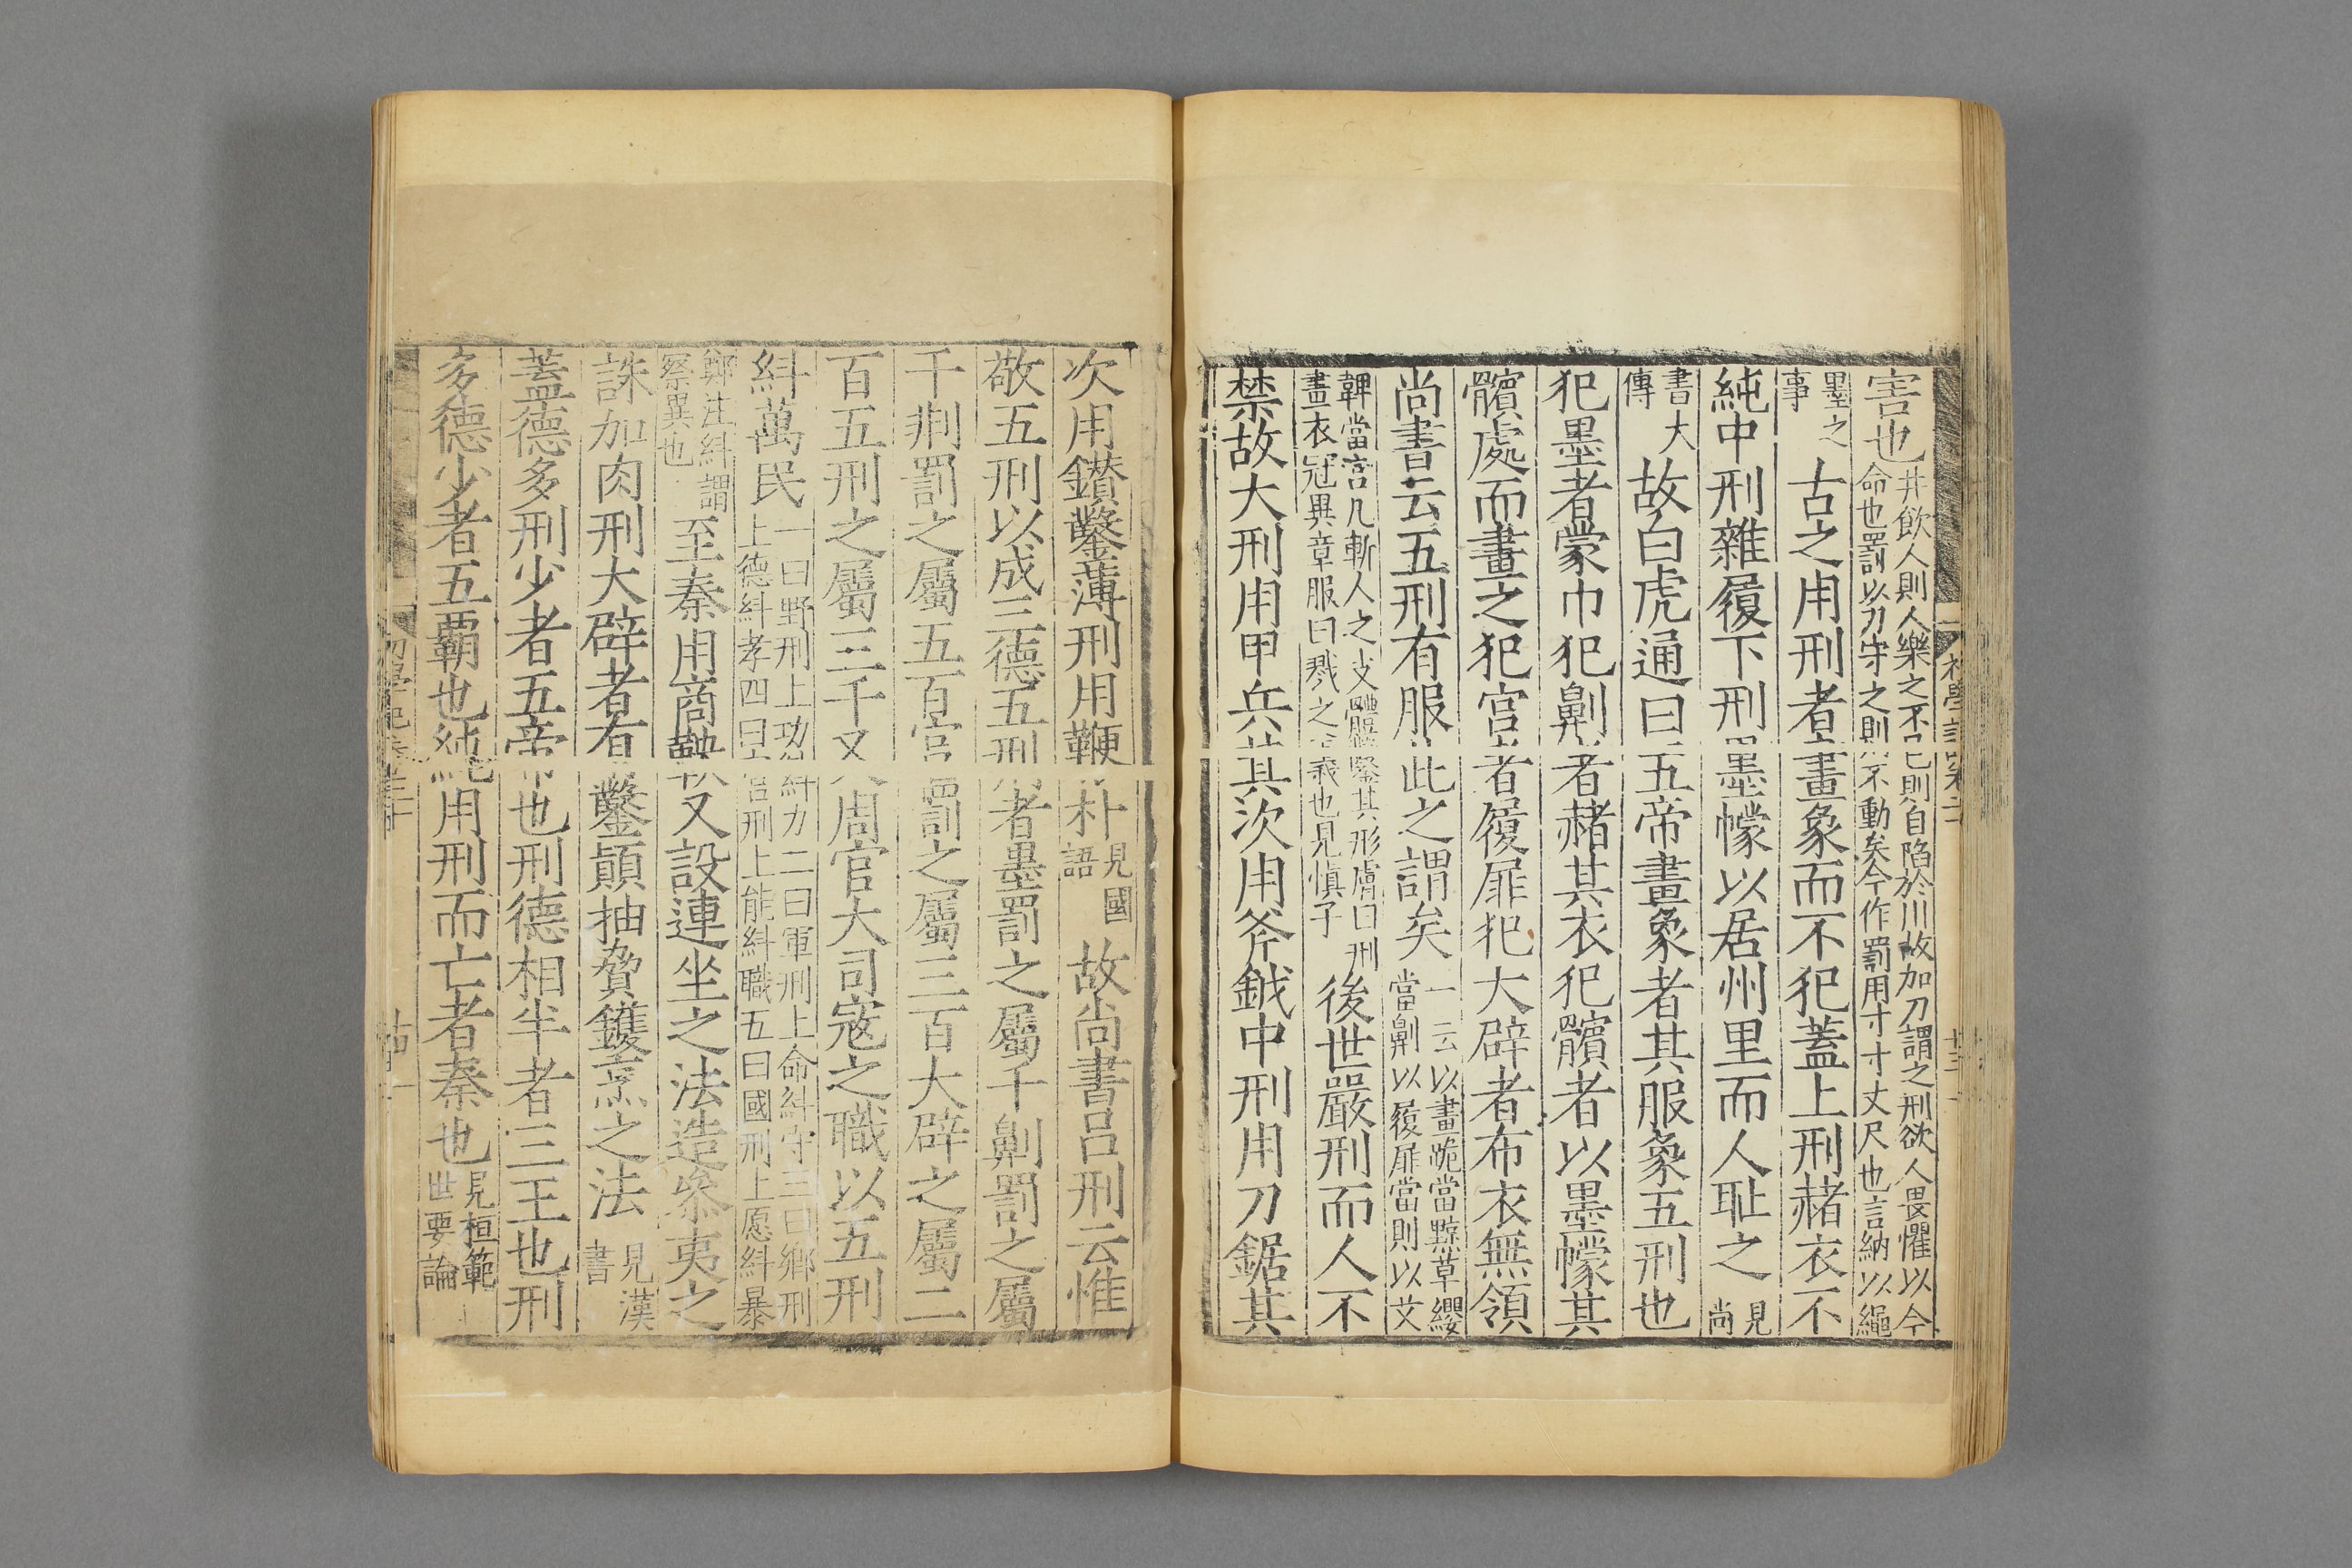 害也井飲人則人樂之不已則自陷於川故加刀謂之刑欲人畏懼以全
命也罰以刀守之則不動矣今作罰用寸寸丈尺也言納以繩
墨之事 古之用刑者畫象而不犯蓋上刑赭衣不
純中刑雜屨下刑墨幪以居州里而人耻之見尚
書大傳 故白虎通曰五帝畫象者其服象五刑也
犯墨者蒙巾犯劓者赭其衣犯髕者以墨幪其
髕處而畫之犯宮者履屝犯大辟者布衣無領
尚書云五刑有服此之謂矣一云以畫跪當黥草纓
當劓以履屝當刖以艾
韠當宮凡斬人之支體鑿其形膚曰刑
畫衣冠異章服曰戮之義也見慎子 後世嚴刑而人不
禁故大刑用甲兵其次用斧鉞中刑用刀鋸其
次用鑚鑿薄刑用鞭朴見國語 故尚書呂刑云惟
敬五刑以成三德五刑者墨罰之屬千劓罰之屬
千剕罰之屬五百宮罰之屬三百大辟之屬二
百五刑之屬三千又周官大司寇之職以五刑
糾萬民一曰野刑上功糾力二曰軍刑上命糾守三曰鄉刑
上德糾孝四曰官刑上能糾職五曰國刑上愿糾暴
鄭注糾謂察異也 至秦用商鞅又設連坐之法造參夷之
誅加肉刑大辟者有鑿顛抽脅鑊烹之法見漢書
蓋德多刑少者五帝也刑德相半者三王也刑
多德少者五覇也純用刑而亡者秦也見桓範世要論